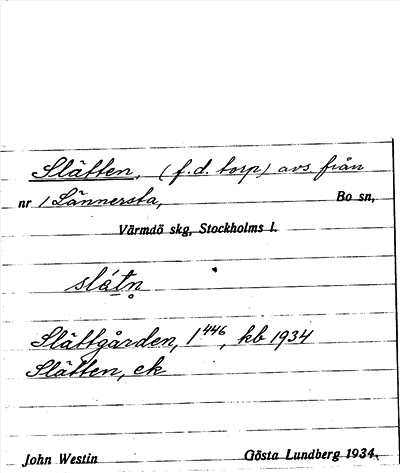 Slätten, (f.d. torp) avs. från
nr 1 Lännersta, Bo sn,
Värmdö skg, Stockholms l.
slátn̥
Slättgården, 1⁴⁴⁶, kb 1934
Slätten, ek
John Westin Gösta Lundberg 1934.